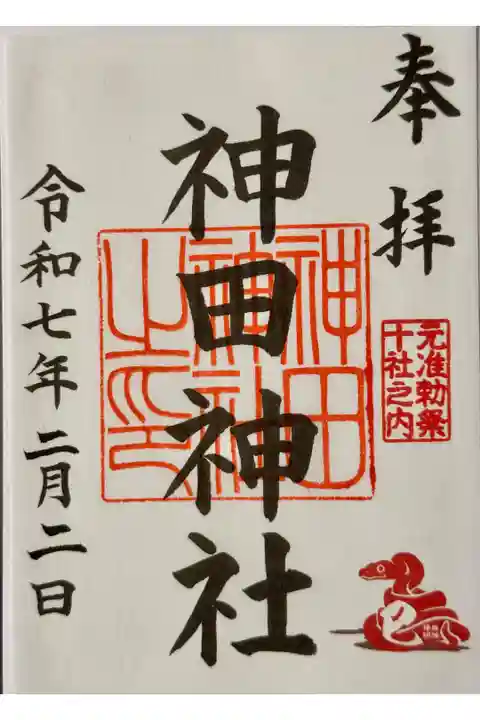 奉拝
元准勅祭
十社之内
神田神社
神田
神社
之印
令和七年二月二日
巳